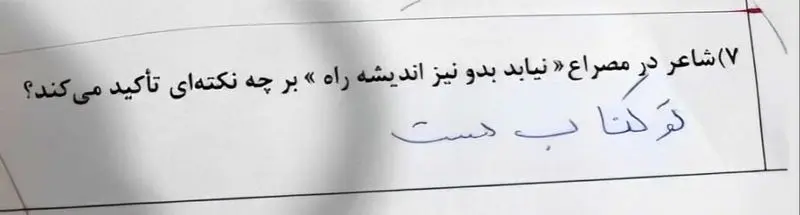 ۷)شاعر در مصراع «نیابد بدو نیز اندیشه راه» بر چه نکته‌ای تأکید می‌کند؟
تو کتاب هست